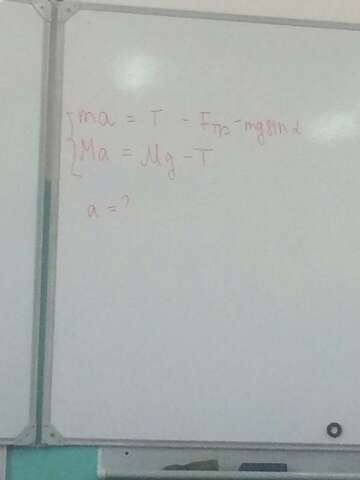 ma = T - Fтр - mg sin α
Ma = Mg - T
a = ?